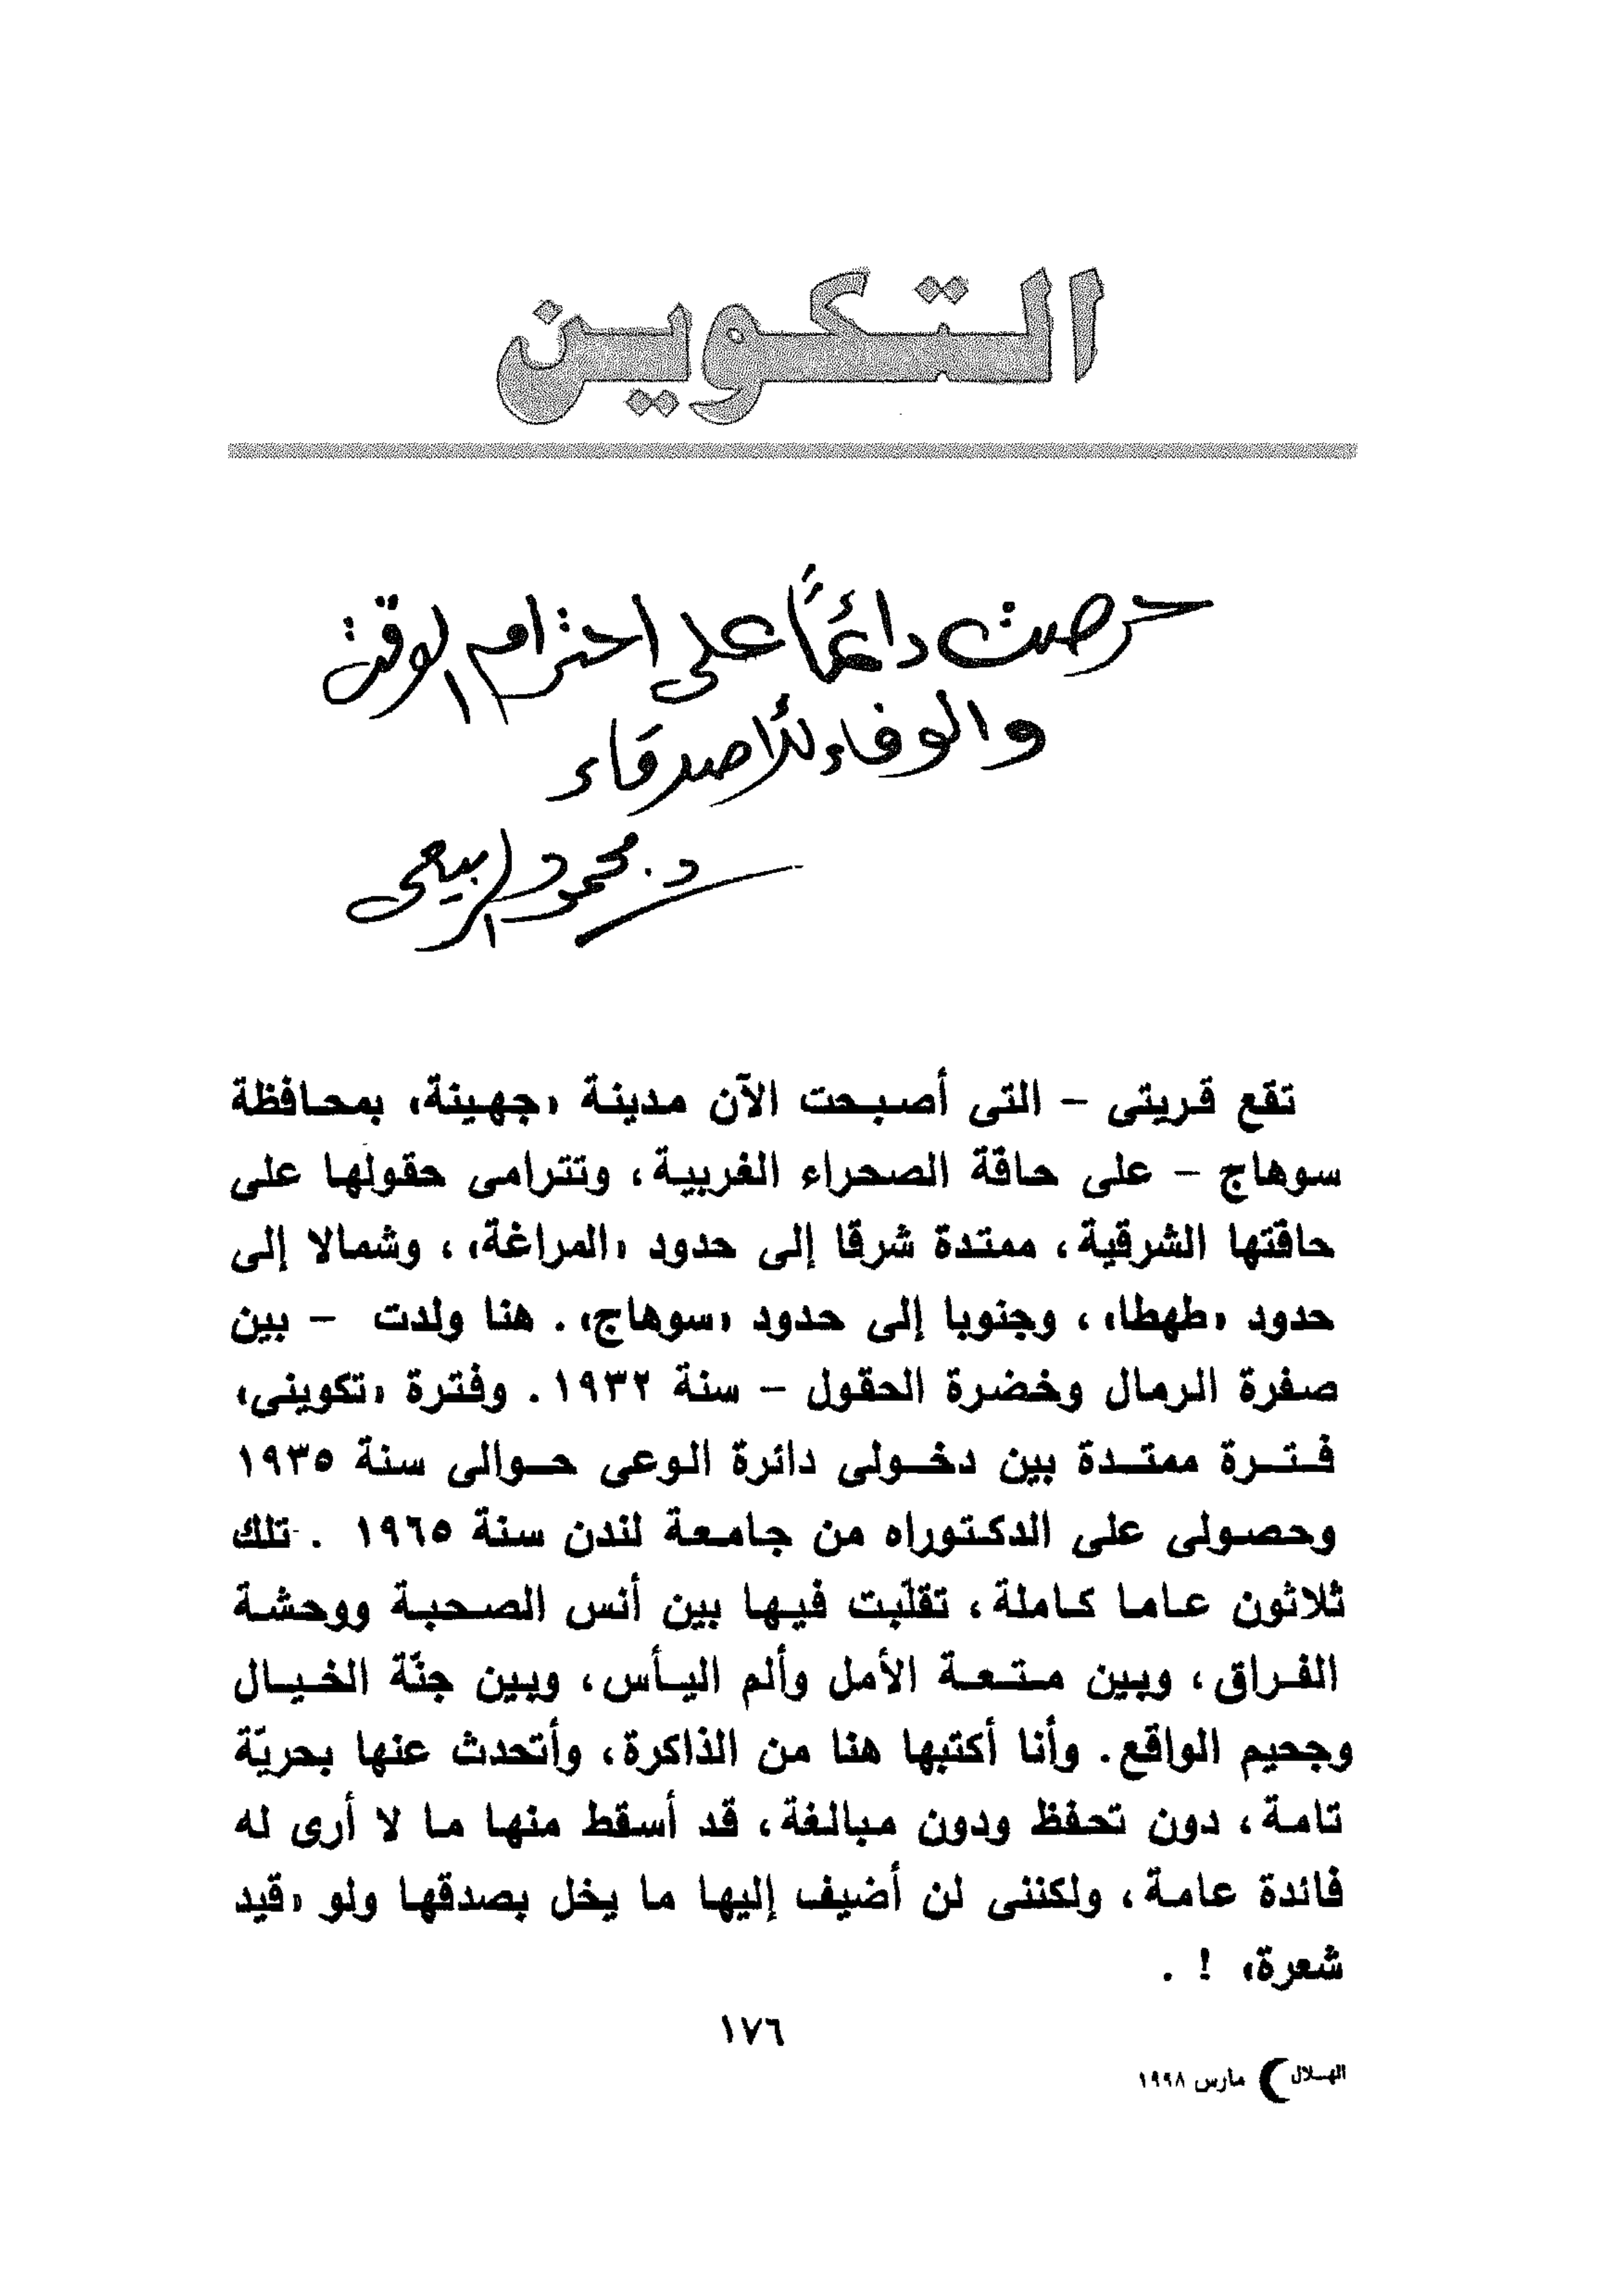 التكوين
حرصت دائمًا على احترام الوقت
والوفاء للأصدقاء
د. محمود الربيعى
تقع قريتى – التى أصبحت الآن مدينة «جهينة» بمحافظة
سوهاج – على حافة الصحراء الغربية، وتترامى حقولها على
حافتها الشرقية، ممتدة شرقا إلى حدود «المراغة»، وشمالا إلى
حدود «طهطا»، وجنوبا إلى حدود «سوهاج». هنا ولدت – بين
صفرة الرمال وخضرة الحقول – سنة ١٩٣٢. وفترة «تكوينى»
فترة ممتدة بين دخولى دائرة الوعى حوالى سنة ١٩٣٥
وحصولى على الدكتوراه من جامعة لندن سنة ١٩٦٥ . تلك
ثلاثون عاما كاملة، تقلّبت فيها بين أنس الصحبة ووحشة
الفراق، وبين متعة الأمل وألم اليأس، وبين جنّة الخيال
وجحيم الواقع. وأنا أكتبها هنا من الذاكرة، وأتحدث عنها بحريّة
تامة، دون تحفظ ودون مبالغة، قد أسقط منها ما لا أرى له
فائدة عامة، ولكننى لن أضيف إليها ما يخل بصدقها ولو «قيد
شعرة» ! .
١٧٦
الهلال مارس ١٩٩٨